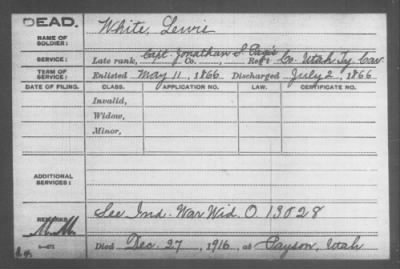 DEAD.
NAME OF SOLDIER: White, Lewis
SERVICE: Late rank, Capt. Jonathan S Page's Co. , Reg't Co. Utah Ty Cav
TERM OF SERVICE: Enlisted May 11, 1866. Discharged July 2, 1866
DATE OF FILING. CLASS. APPLICATION NO. LAW. CERTIFICATE NO.
Invalid,
Widow,
Minor,
ADDITIONAL SERVICES:
REMARKS: See Ind. War Wid. O. 13028
M.M.
3—471
Died Dec. 27, 1916, at Payson, Utah